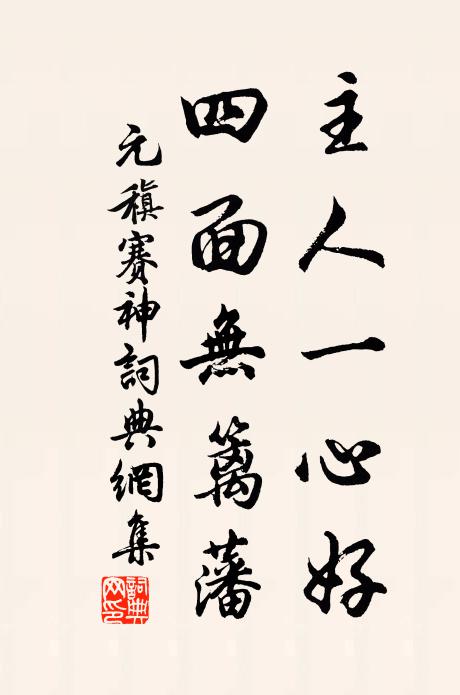 主人一心好
四面無籬藩
元稹賽神詞典網集
詞典網印